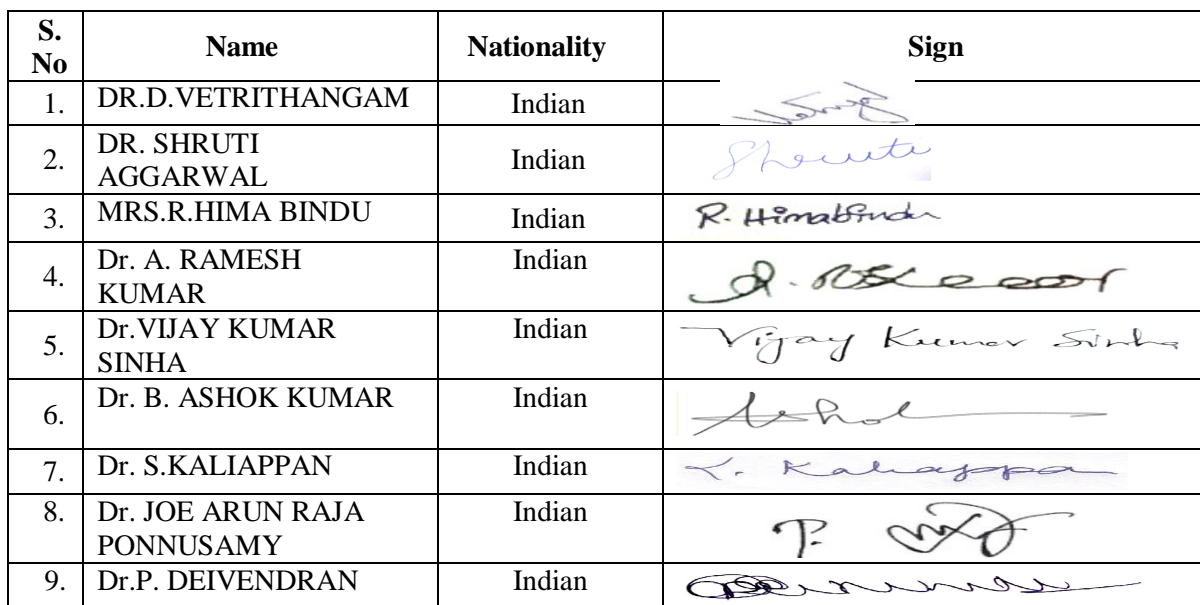 S. No Name Nationality Sign
1. DR.D.VETRITHANGAM Indian
2. DR. SHRUTI AGGARWAL Indian Shruti
3. MRS.R.HIMA BINDU Indian R. Himabindu
4. Dr. A. RAMESH KUMAR Indian
5. Dr.VIJAY KUMAR SINHA Indian Vijay Kumar Sinha
6. Dr. B. ASHOK KUMAR Indian Ashok
7. Dr. S.KALIAPPAN Indian S. Kaliappa
8. Dr. JOE ARUN RAJA PONNUSAMY Indian
9. Dr.P. DEIVENDRAN Indian